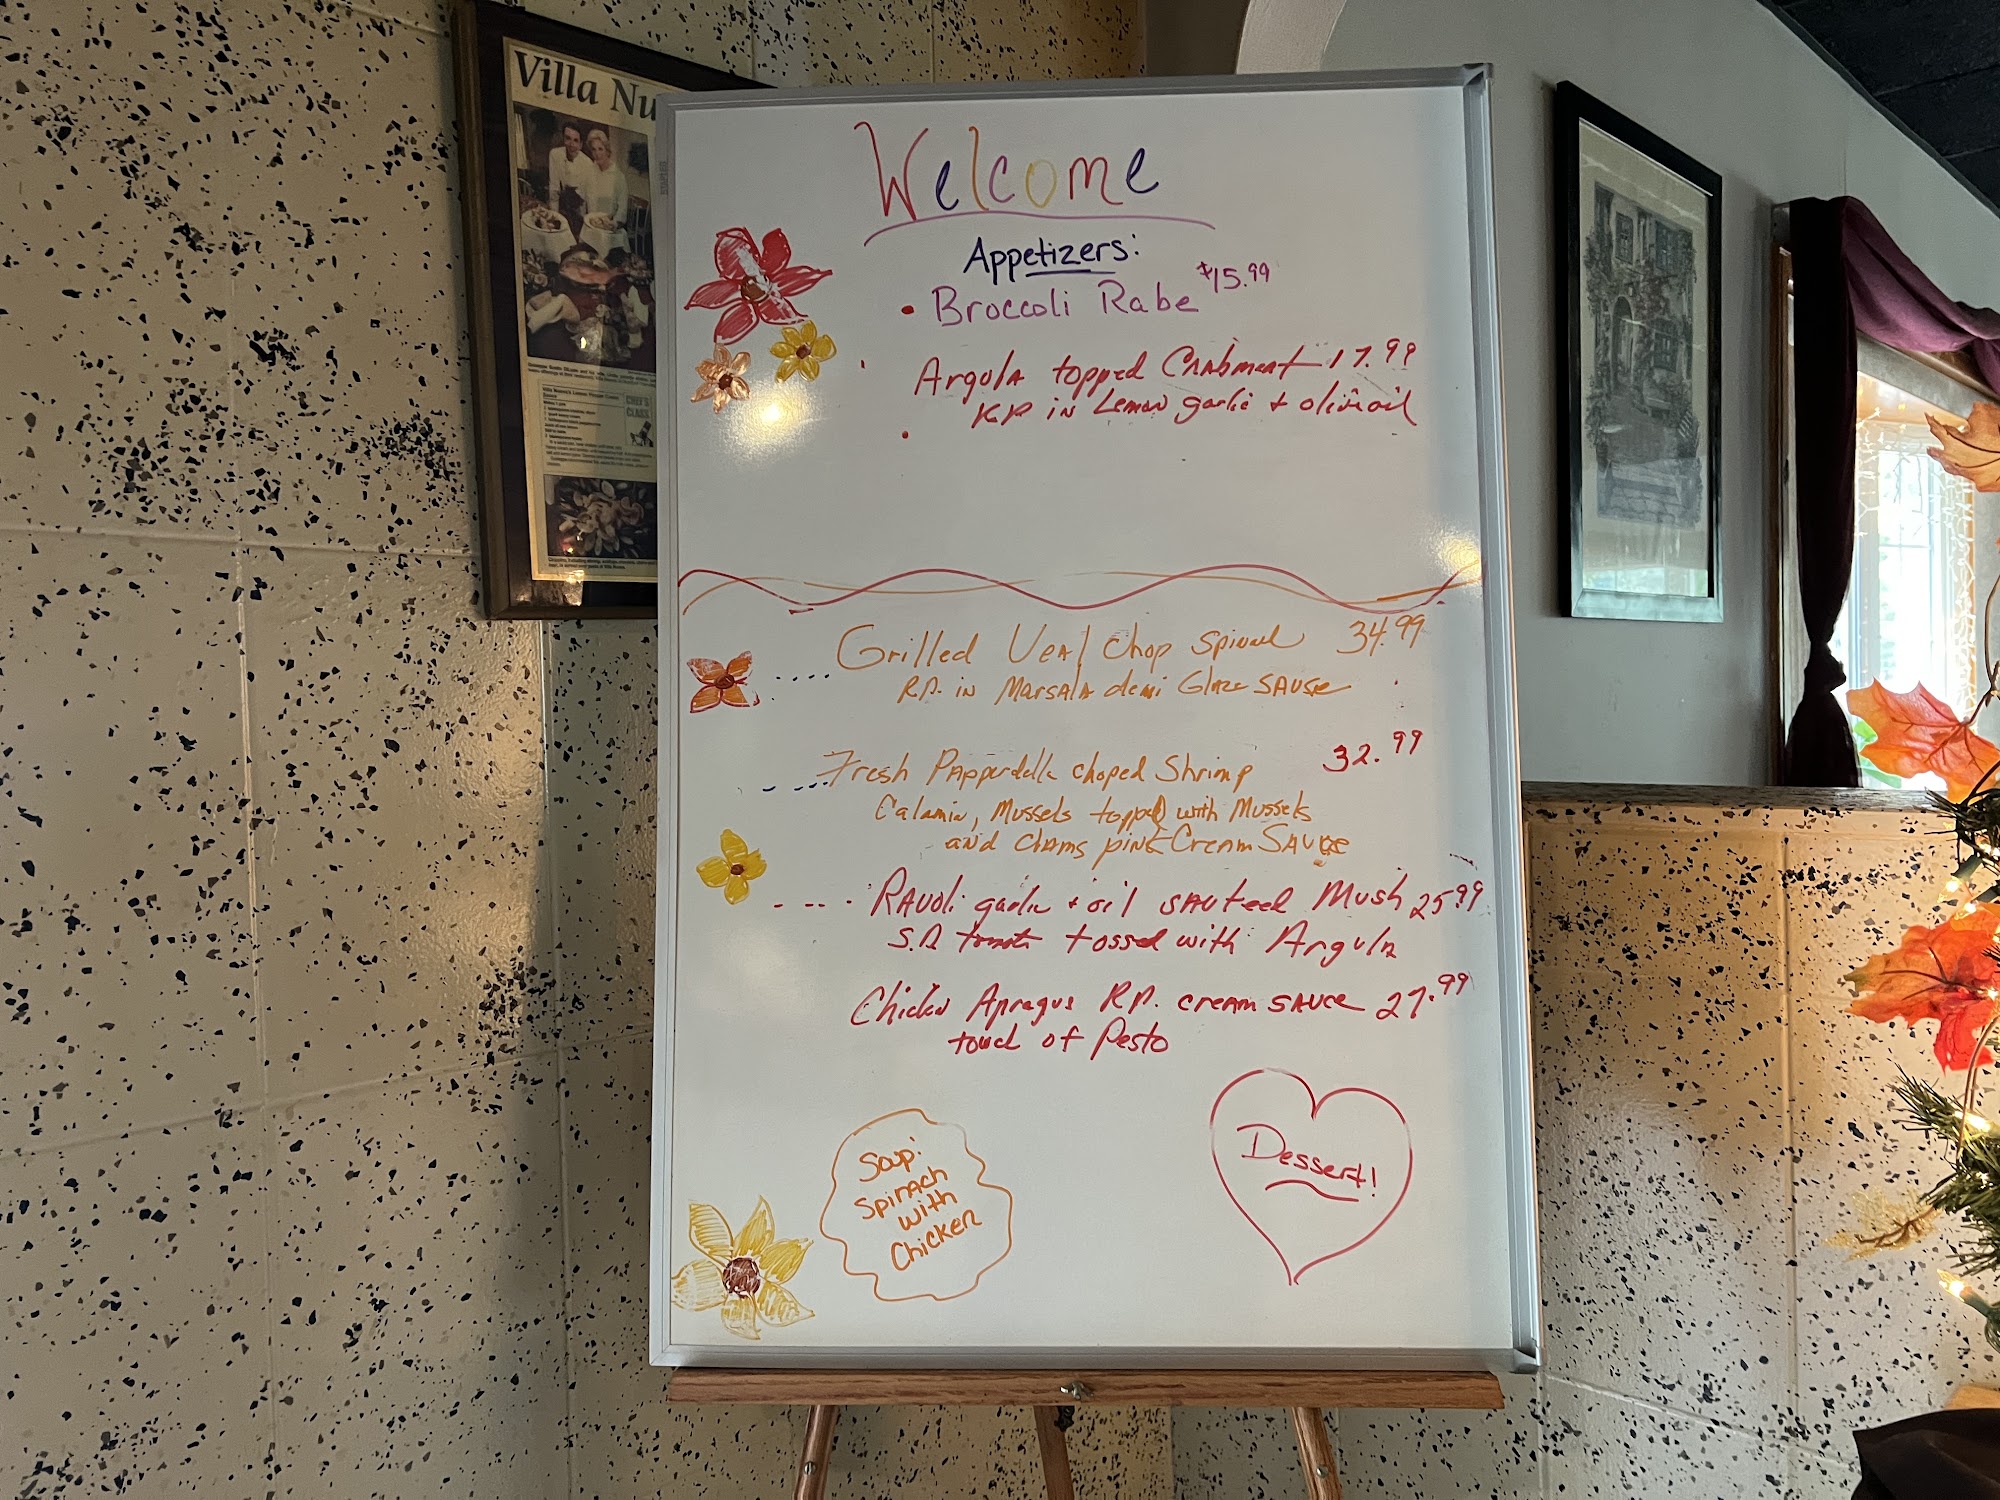 Villa Nu
CHEF'S
CLASS
Welcome
Appetizers:
• Broccoli Rabe $15.99
Argula topped Crabmeat 17.99
R.P. in Lemon garlic + olive oil
Grilled Veal Chop 34.99
R.P. in Marsala demi Glaze SAUSe
Fresh Papperdelle choped Shrimp 32.99
Calamia, Mussels topped with Mussels
and clams pink Cream SAUce
RAVOLi garlic + oil SAUteed Mush 25.99
S.D tomato tossed with Argula
Chicken Apragus R.P. cream SAUce 27.99
touch of Pesto
Soup:
Spinach
with
Chicken
Dessert!